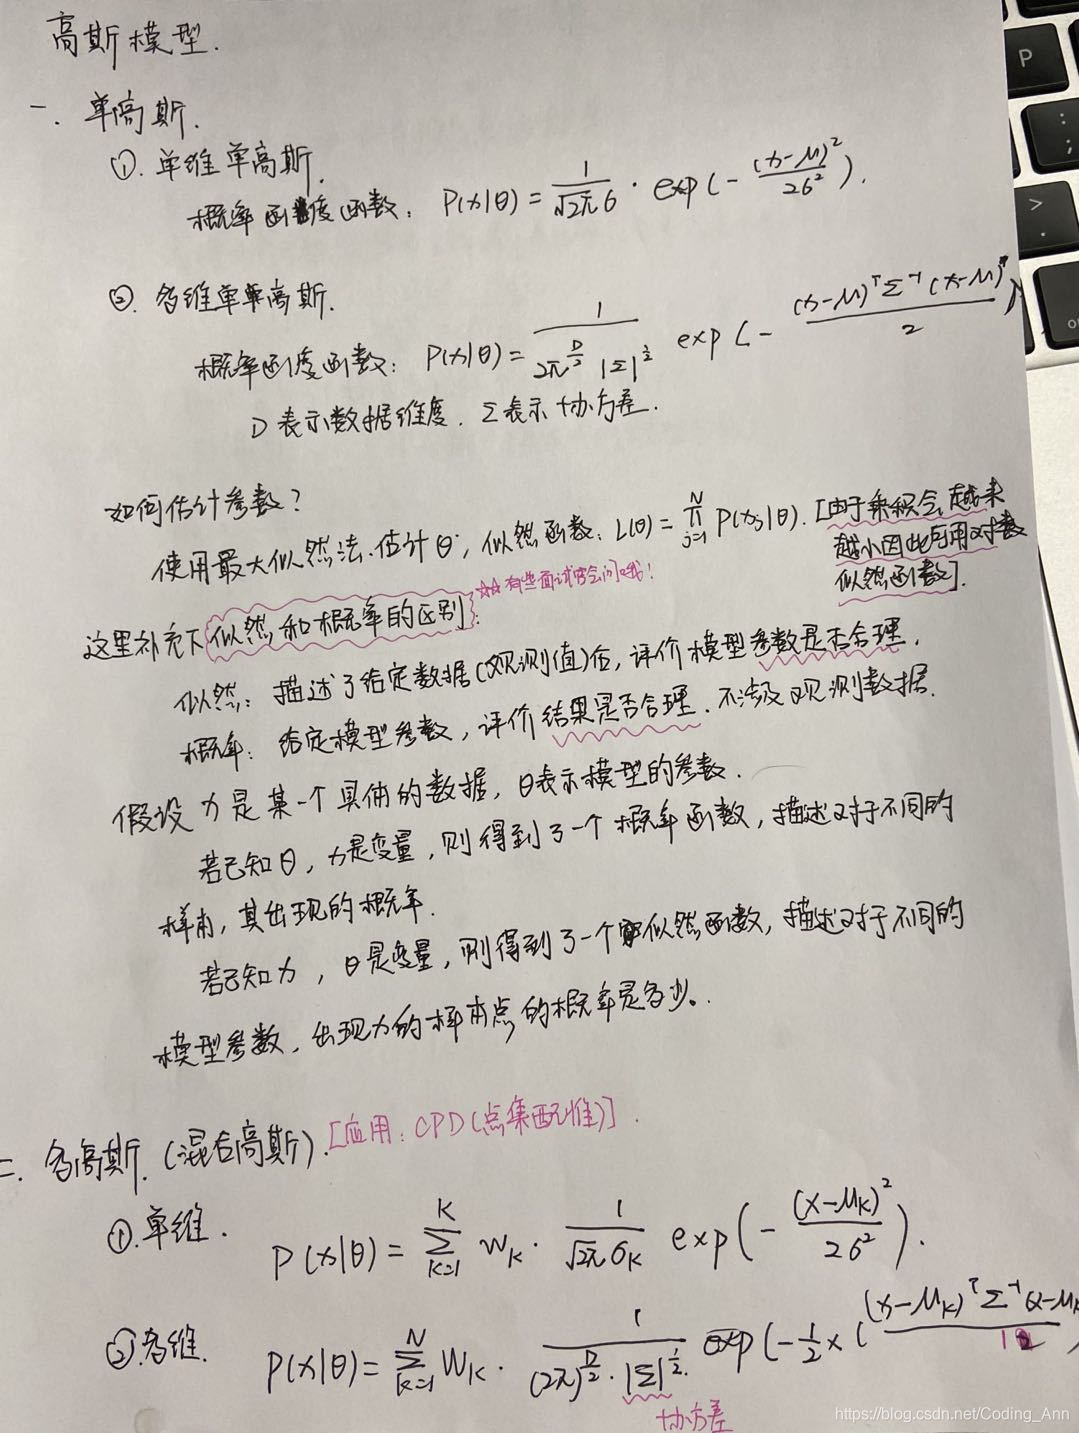 高斯模型.
一. 单高斯.
①. 单维单高斯.
概率密度函数: P(x|θ) = 1/(√2π σ) · exp(-(x-μ)²/2σ²).
②. 多维单高斯.
概率密度函数: P(x|θ) = 1/(2π^(D/2) |Σ|^(1/2)) exp(-(x-μ)ᵀΣ⁻¹(x-μ)/2)
D 表示数据维度. Σ表示协方差.
如何估计参数?
使用最大似然法.估计θ, 似然函数: L(θ) = ∏_{j=1}^{N} P(xj|θ). [由于乘积会越来
越小因此可用对数
似然函数].
☆☆有些面试官会问哦!
这里补充下似然和概率的区别:
似然: 描述了给定数据(观测值)后, 评价模型参数是否合理.
概率: 给定模型参数, 评价结果是否合理. 不涉及观测数据.
假设x是某一个具体的数据, θ表示模型的参数.
若已知θ, x是变量, 则得到了一个概率函数, 描述对于不同的
样本, 其出现的概率.
若已知x, θ是变量, 则得到了一个似然函数, 描述对于不同的
模型参数, 出现x的样本点的概率是多少。
二. 多高斯. (混合高斯). [应用: CPD(点集配准)].
①.单维. P(x|θ) = Σ_{k=1}^{K} Wk · 1/(√2π σk) exp(-(x-μk)²/2σ²).
②多维. P(x|θ) = Σ_{k=1}^{N} Wk · 1/((2π)^(D/2) · |Σ|^(1/2)) exp(-1/2 × ((x-μk)ᵀΣ⁻¹(x-μk
协方差
P
:
;
>
.
https://blog.csdn.net/Coding_Ann